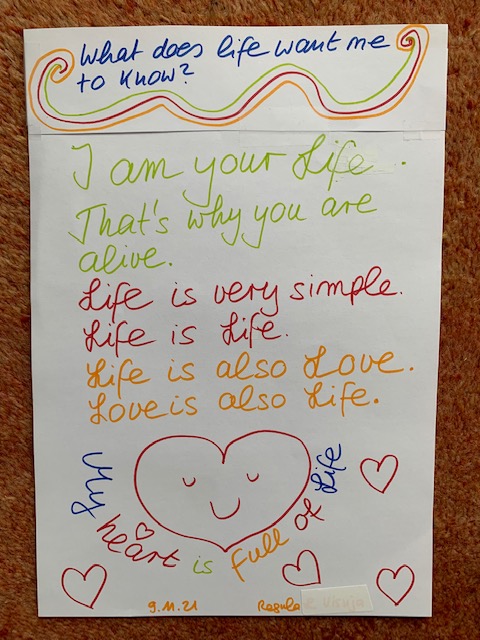 What does life want me
to know?
I am your Life.
That's why you are
alive.
Life is very simple.
Life is Life.
Life is also Love.
Love is also Life.
My heart is full of Life
9.11.21 Regula